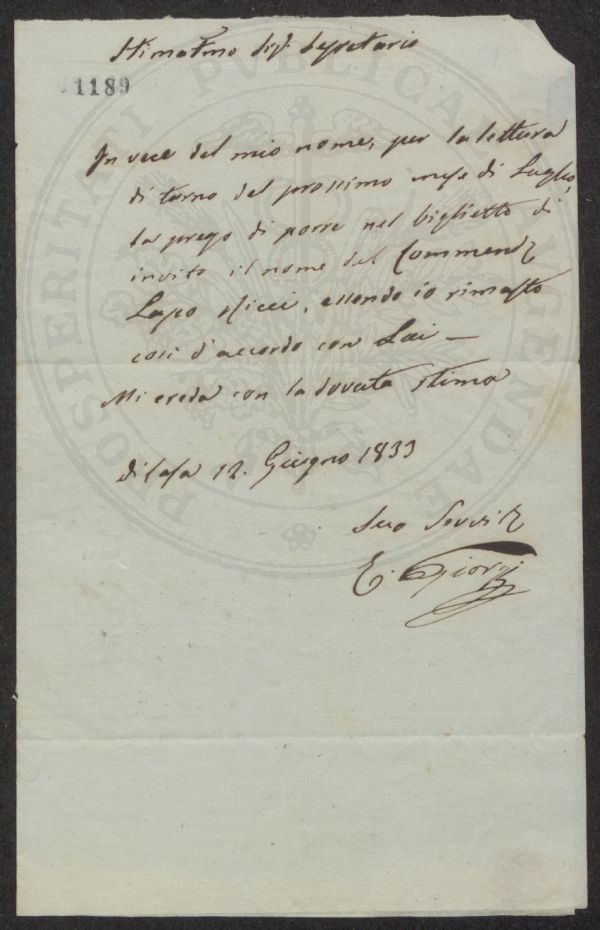 Stimatmo Sigr Segretario
1189
In vece del mio nome, per la lettura
di turno del prossimo mese di Luglio,
la prego di porre nel biglietto di
invito il nome del Commendr
Lapo Ricci, essendo io rimasto
così d'accordo con Lui —
Mi creda con la dovuta stima
di Casa 12. Giugno 1833
Suo
E. Giorgi
PROSPERITATI PUBLICAE AUGENDAE